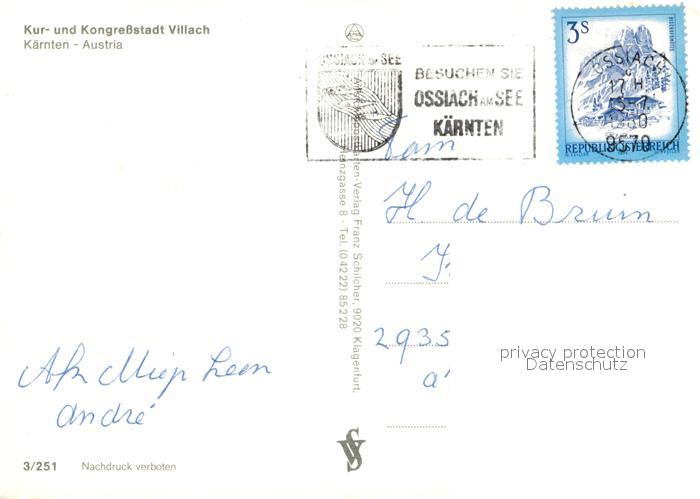 Kur- und Kongreßstadt Villach
Kärnten - Austria
OSSIACH AM SEE
BESUCHEN SIE
OSSIACH AM SEE
KÄRNTEN
3S
OSSIACH
17H
9570
REPUBLIK ÖSTERREICH
Fam
H. de Bruin
2935
Afz Miep Leen
André
privacy protection
Datenschutz
-Verlag Franz Schilcher, 9020 Klagenfurt,
gasse 8 - Tel. (04222) 85228
3/251 Nachdruck verboten